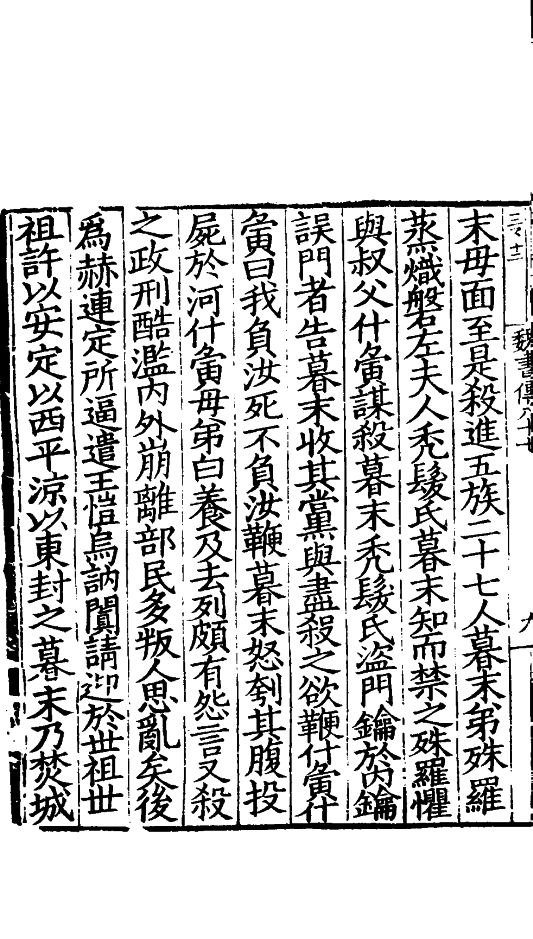 魏書傳八十七
九
末母面至是殺進五族二十七人暮末弟殊羅
蒸熾磐左夫人禿髮氏暮末知而禁之殊羅懼
與叔父什夤謀殺暮末禿髮氏盜門鑰於內鑰
誤門者告暮末收其黨與盡殺之欲鞭什夤什
夤曰我負汝死不負汝鞭暮末怒刳其腹投
屍於河什夤母弟白養及去列頗有怨言又殺
之政刑酷濫內外崩離部民多叛人思亂矣後
爲赫連定所逼遣王愷烏訥闐請迎於世祖世
祖許以安定以西平涼以東封之暮末乃焚城